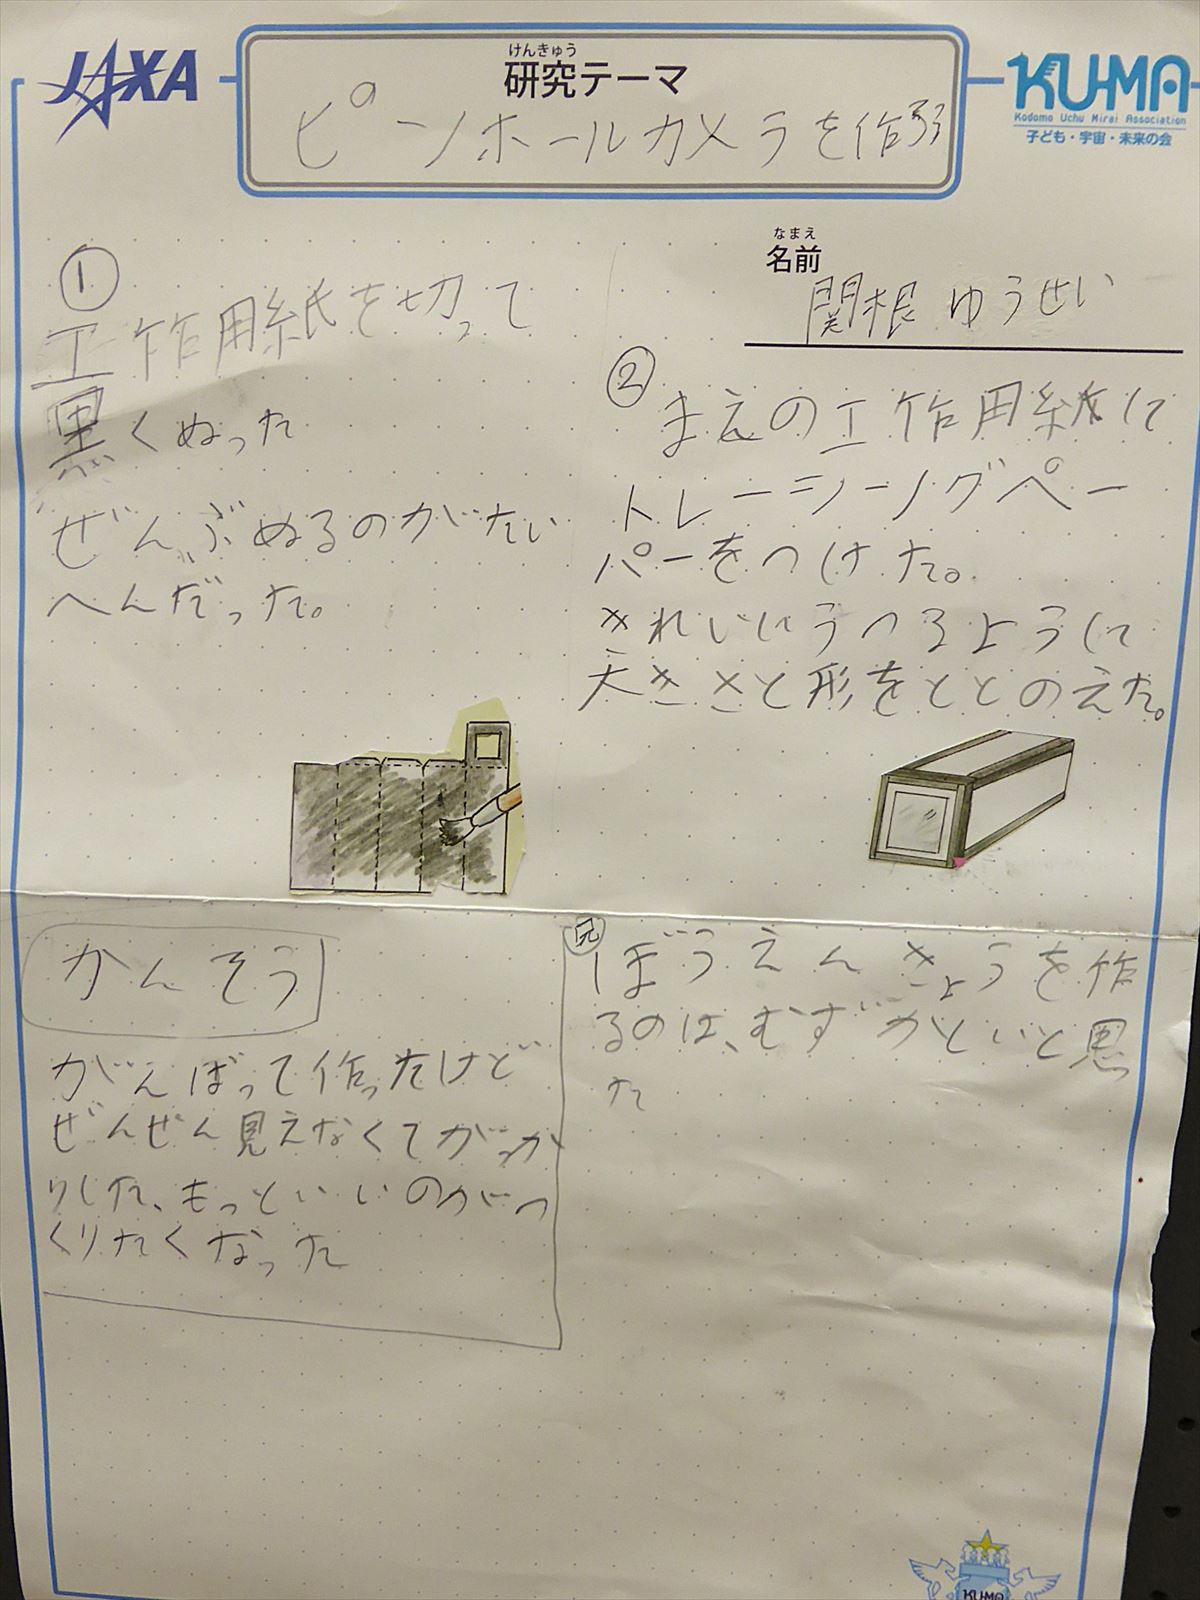 JAXA
けんきゅう
研究テーマ
ピンホールカメラを作ろう
KU-MA
Kodomo Uchu Mirai Association
子ども・宇宙・未来の会
なまえ
名前
関根 ゆうせい
①
工作用紙を切って
黒くぬった
ぜんぶぬるのがたい
へんだった。
②
まえの工作用紙に
トレーシーングペー
パーをつけた。
きれいにうつるように
大きさと形をととのえた。
かんそう
がんばって作ったけど
ぜんぜん見えなくてがっか
りした、もっといいのがつ
くりたくなった
ぼうえんきょうを作
るのは、むずかしいと思っ
た
KU-MA